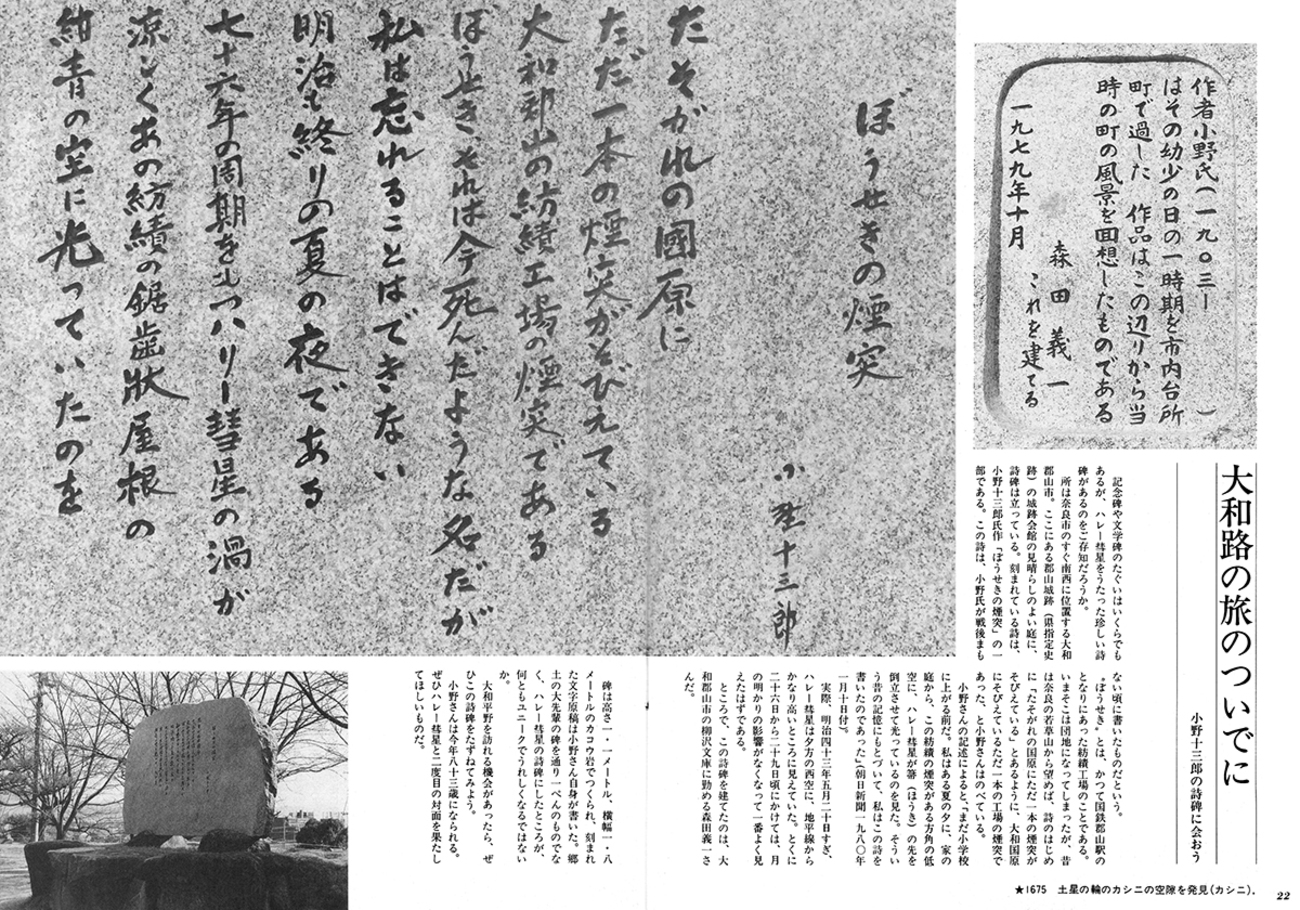 大和路の旅のついでに
小野十三郎の詩碑に会おう
記念碑や文学碑のたぐいはいくらでも
あるが、ハレー彗星をうたった珍しい詩
碑があるのをご存知だろうか。
所は奈良市のすぐ南西に位置する大和
郡山市。ここにある郡山城跡（県指定史
跡）の城跡会館の見晴らしのよい庭に、
詩碑は立っている。刻まれている詩は、
小野十三郎氏作「ぼうせきの煙突」の一
部である。この詩は、小野氏が戦後まも
ない頃に書いたものだという。
〝ぼうせき〟とは、かつて国鉄郡山駅の
となりにあった紡績工場のことである。
いまそこは団地になってしまったが、昔
は奈良の若草山から望めば、詩のはじめ
に「たそがれの国原にただ一本の煙突が
そびえている」とあるように、大和国原
にそびえているただ一本の工場の煙突で
あった、と小野さんはのべている。
小野さんの記述によると、「まだ小学校
に上がる前だ。私はある夏の夕に、家の
庭から、この紡績の煙突がある方角の低
空に、ハレー彗星が箒（ほうき）の先を
倒立させて光っているのを見た。そうい
う昔の記憶にもとづいて、私はこの詩を
書いたのであった」（朝日新聞一九八〇年
一月十日付）。
実際、明治四十三年五月二十日すぎ、
ハレー彗星は夕方の西空に、地平線から
かなり高いところに見えていた。とくに
二十六日から二十九日頃にかけては、月
の明かりの影響がなくなって一番よく見
えたはずである。
ところで、この詩碑を建てたのは、大
和郡山市の柳沢文庫に勤める森田義一さ
んだ。
碑は高さ一・一メートル、横幅一・八
メートルのカコウ岩でつくられ、刻まれ
た文字原稿は小野さん自身が書いた。郷
土の大先輩の碑を通り一ぺんのものでな
く、ハレー彗星の詩碑にしたところが、
何ともユニークでうれしくなるではない
か。
大和平野を訪れる機会があったら、ぜ
ひこの詩碑をたずねてみよう。
小野さんは今年八十三歳になられる。
ぜひハレー彗星と二度目の対面を果たし
てほしいものだ。
作者小野氏（一九〇三ー　）
はその幼少の日の一時期を市内台所
町で過した　作品はこの辺りから当
時の町の風景を回想したものである
森田義一
これを建てる
一九七九年十月
ぼうせきの煙突
小野十三郎
たそがれの國原に
ただ一本の煙突がそびえている
大和郡山の紡績工場の煙突である
ぼうせき、それは今死んだような名だが
私は忘れることはできない
明治も終りの夏の夜である
七十六年の周期をもつハリー彗星の渦が
涼しくあの紡績の鋸歯状屋根の
紺青の空に光っていたのを
★1675　土星の輪のカシニの空隙を発見（カシニ）。
22